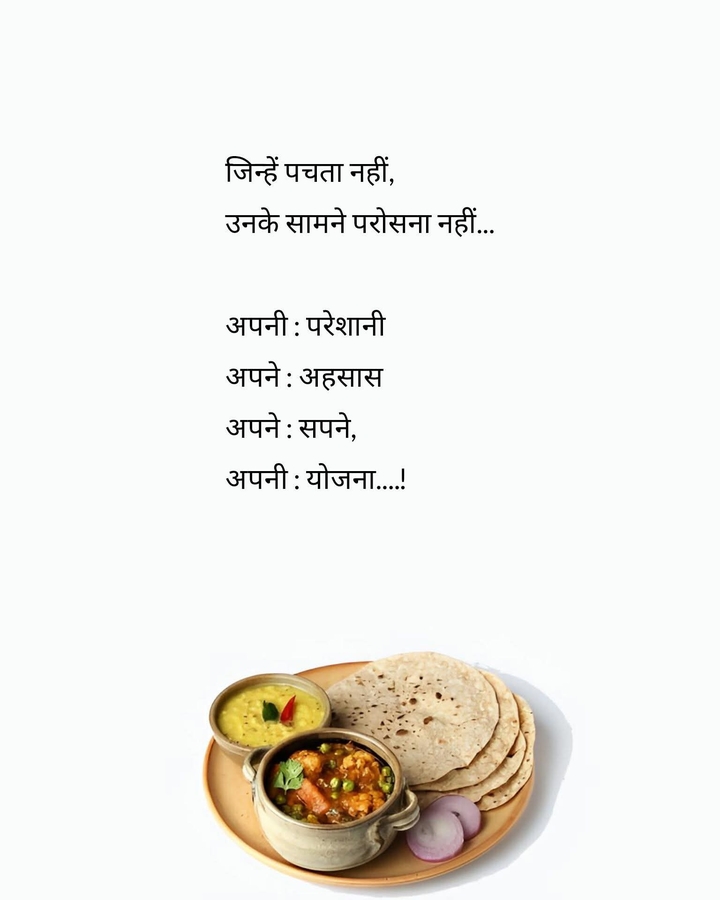 जिन्हें पचता नहीं,
उनके सामने परोसना नहीं...
अपनी : परेशानी
अपने : अहसास
अपने : सपने,
अपनी : योजना....!